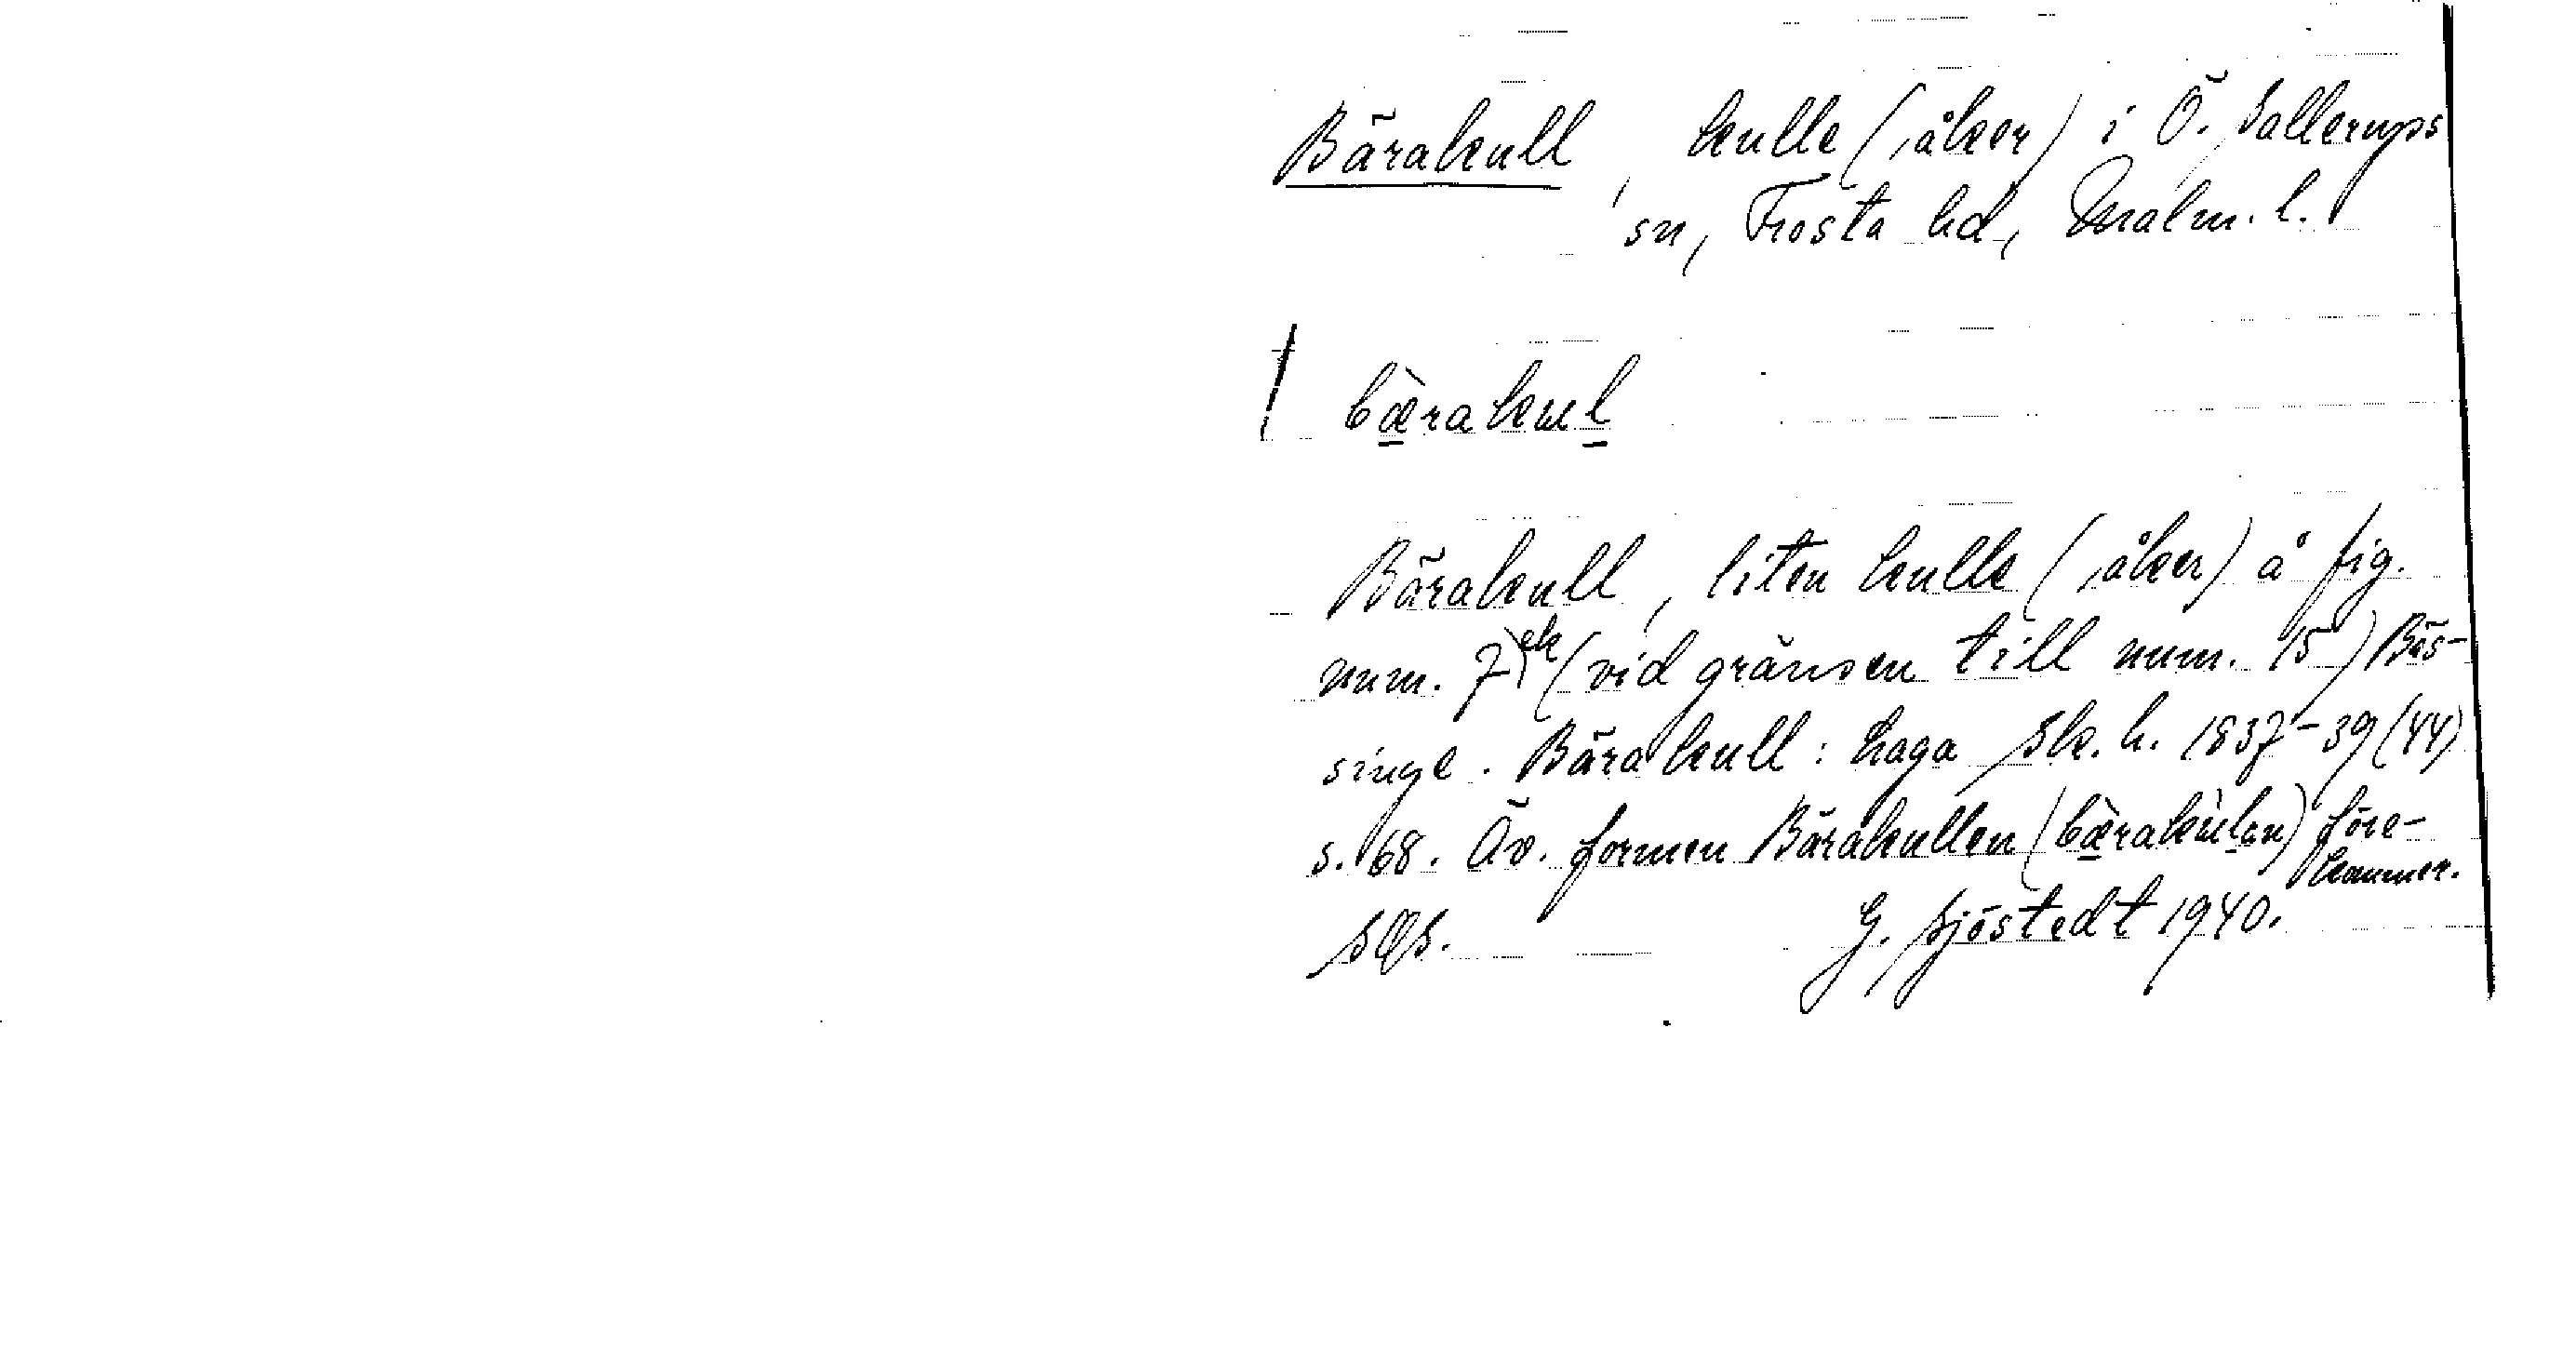 Bärakull, kulle (, åker) i Ö. Sallerups
sn, Frosta hd, Malm. l.
bæ̀rakul
Bärakull, liten kulle (, åker) å fig.
num. 7 (vid gränsen till num. 15) Bös-
singe. Bärakull: haga Sk. h. 1837-39 (44)
s. 68. Äv. formen Bärakullen (bæ̀rakùlan) före-
kommer.
SOS. G. Sjöstedt 1940.